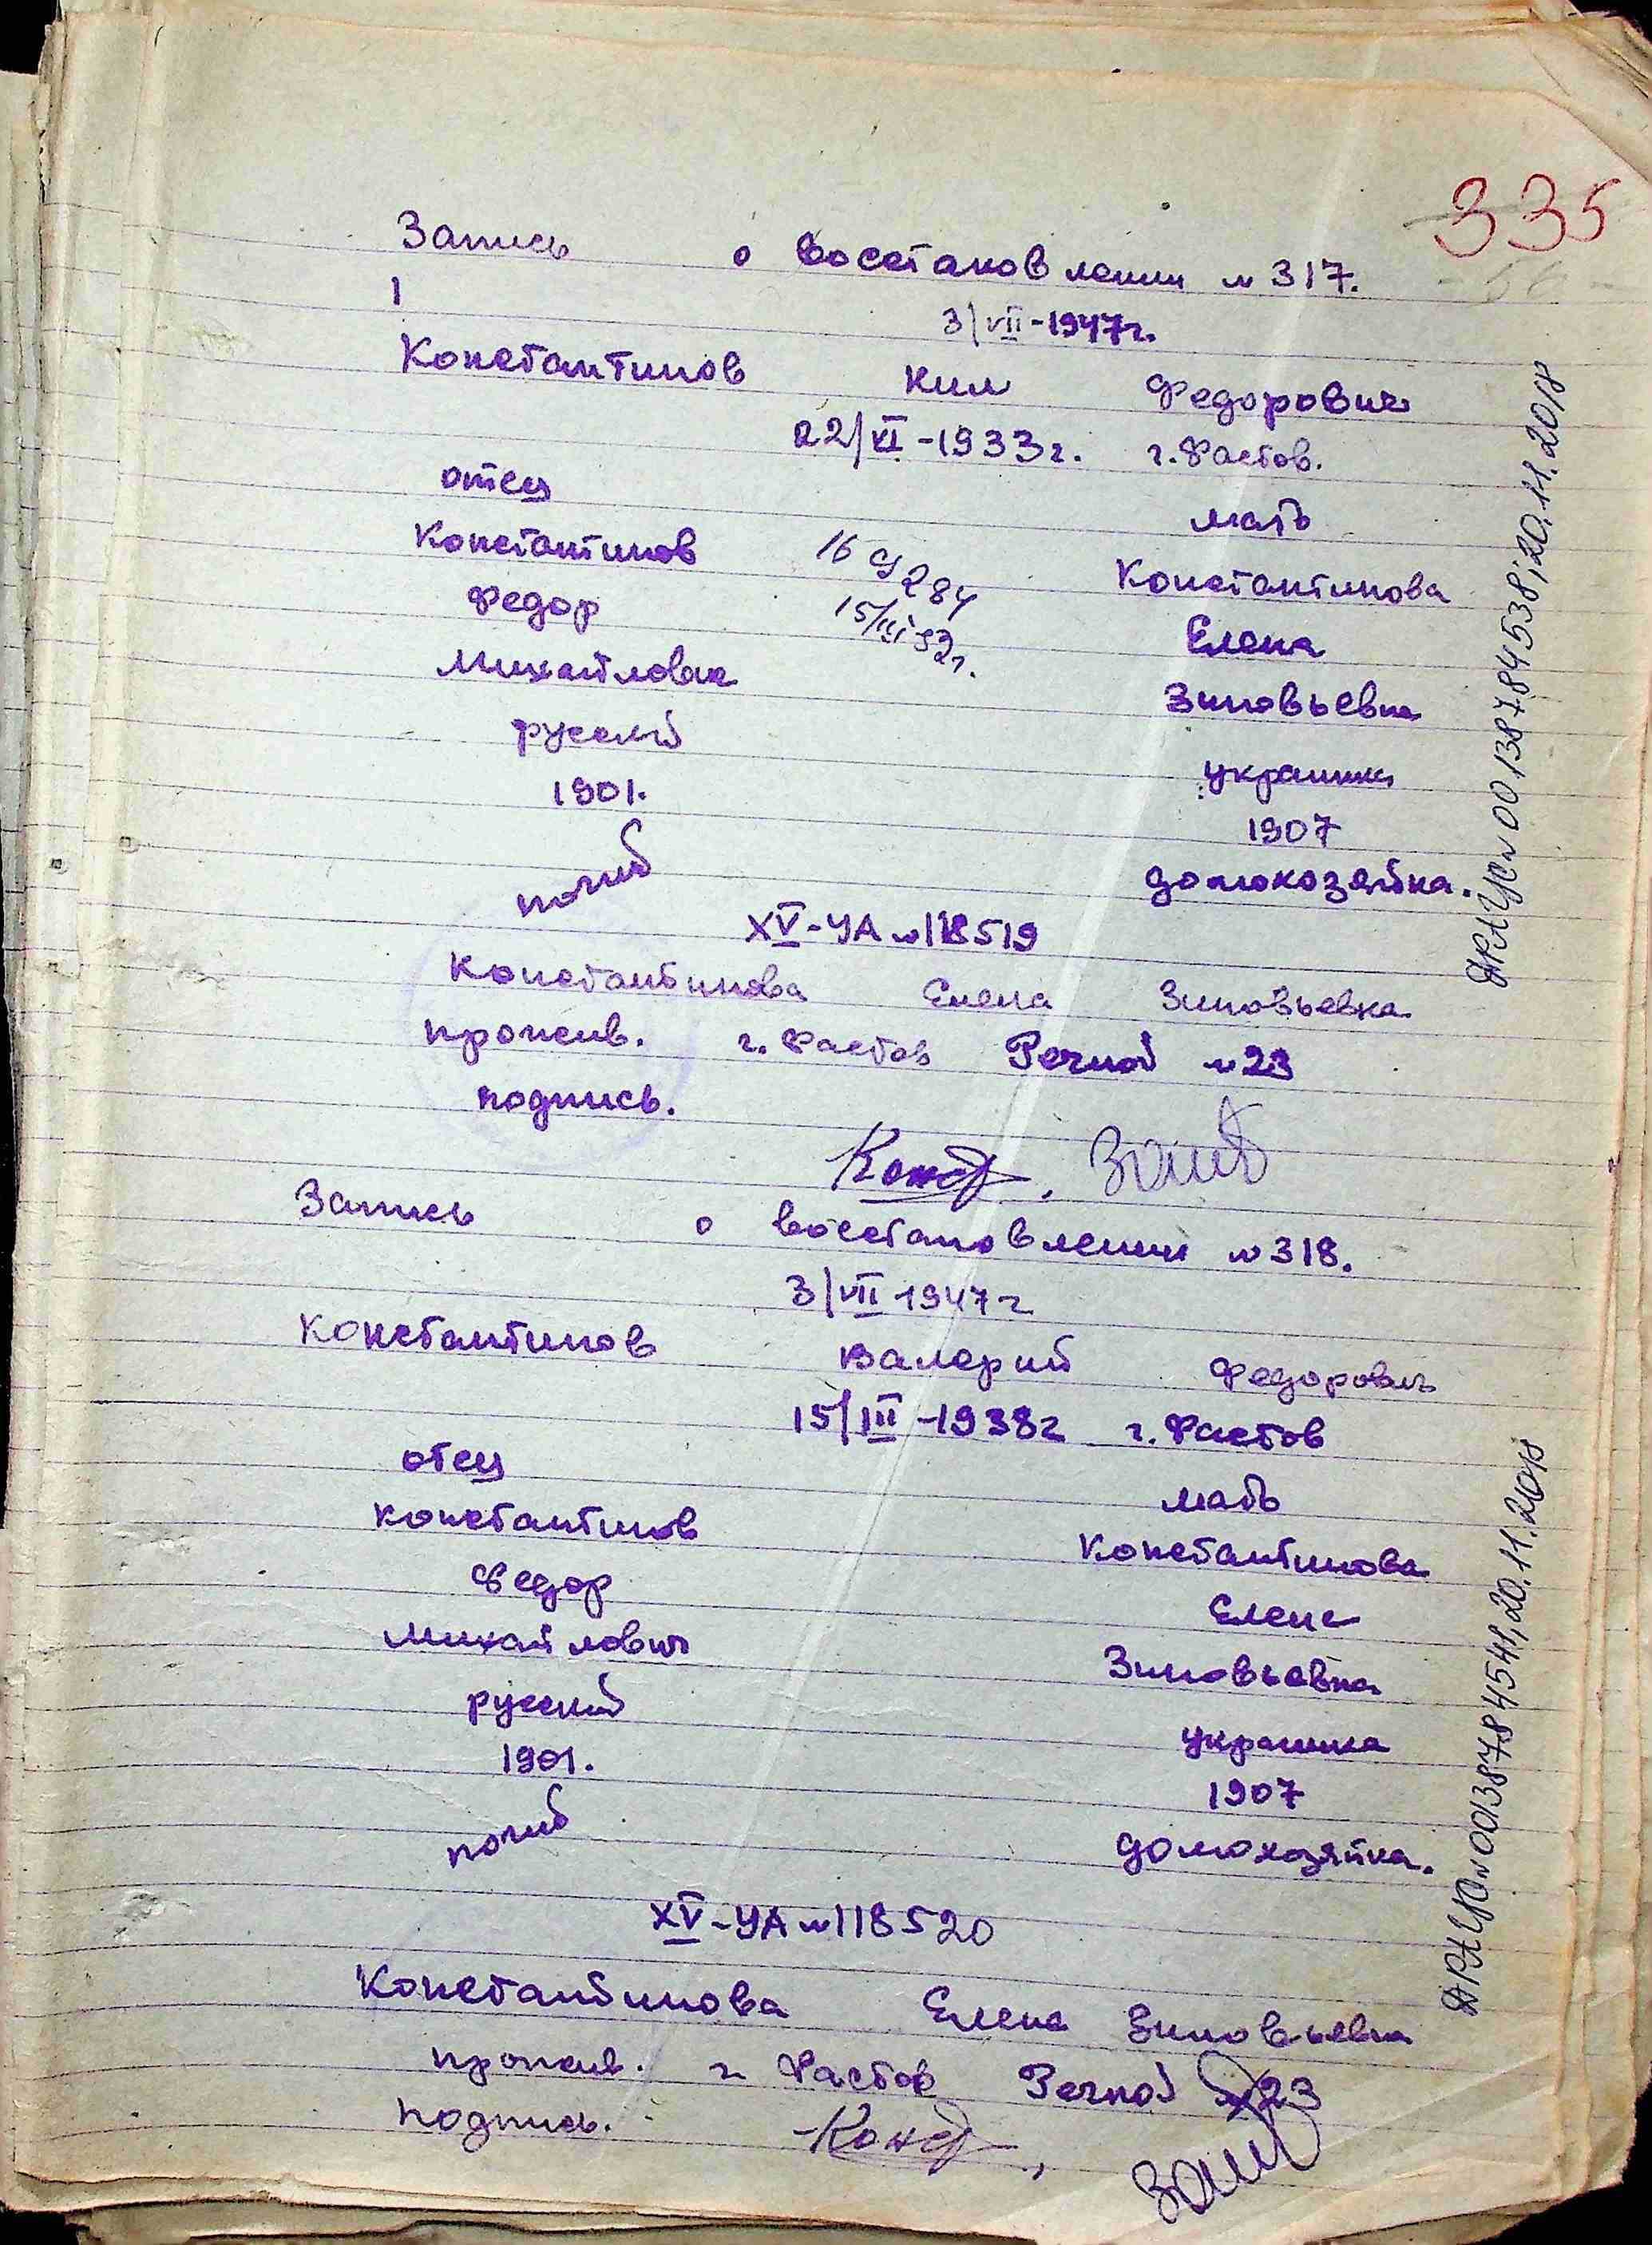 335
Запись о восстановлении № 317.
1
3/VII-1947г.
Константинов Ким Федорович
22/VI-1933г. г. Фастов.
отец мать
Константинов Константинова
16 284
Федор Елена
15/III
Михайлович Зиновьевна
русский украинка
1901. 1907
погиб домохозяйка.
XV-УА № 118519
Константинова Елена Зиновьевна
прожив. г. Фастов Речной № 23
подпись.
Конст,
Запись о восстановлении № 318.
3/VII 1947г
Константинов Валерий Федорович
15/III-1938г г. Фастов
отец мать
Константинов Константинова
Федор Елена
Михайлович Зиновьевна
русский украинка
1901. 1907
погиб домохозяйка.
XV-УА № 118520
Константинова Елена Зиновьевна
прожив. г Фастов Речной № 23
подпись. Конст,
ДРАЦС № 00138784538; 20.11.2018
ДРАЦС № 00138784541; 20.11.2018